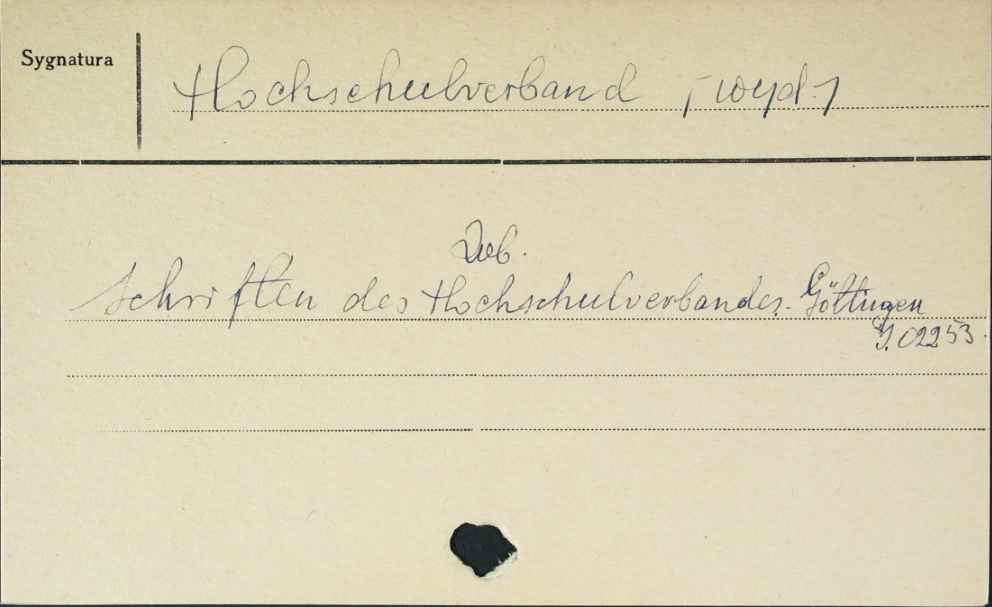 Sygnatura
Hochschulverband [wyd.]
Schriften des Hochschulverbandes. Göttingen
J. 02253.